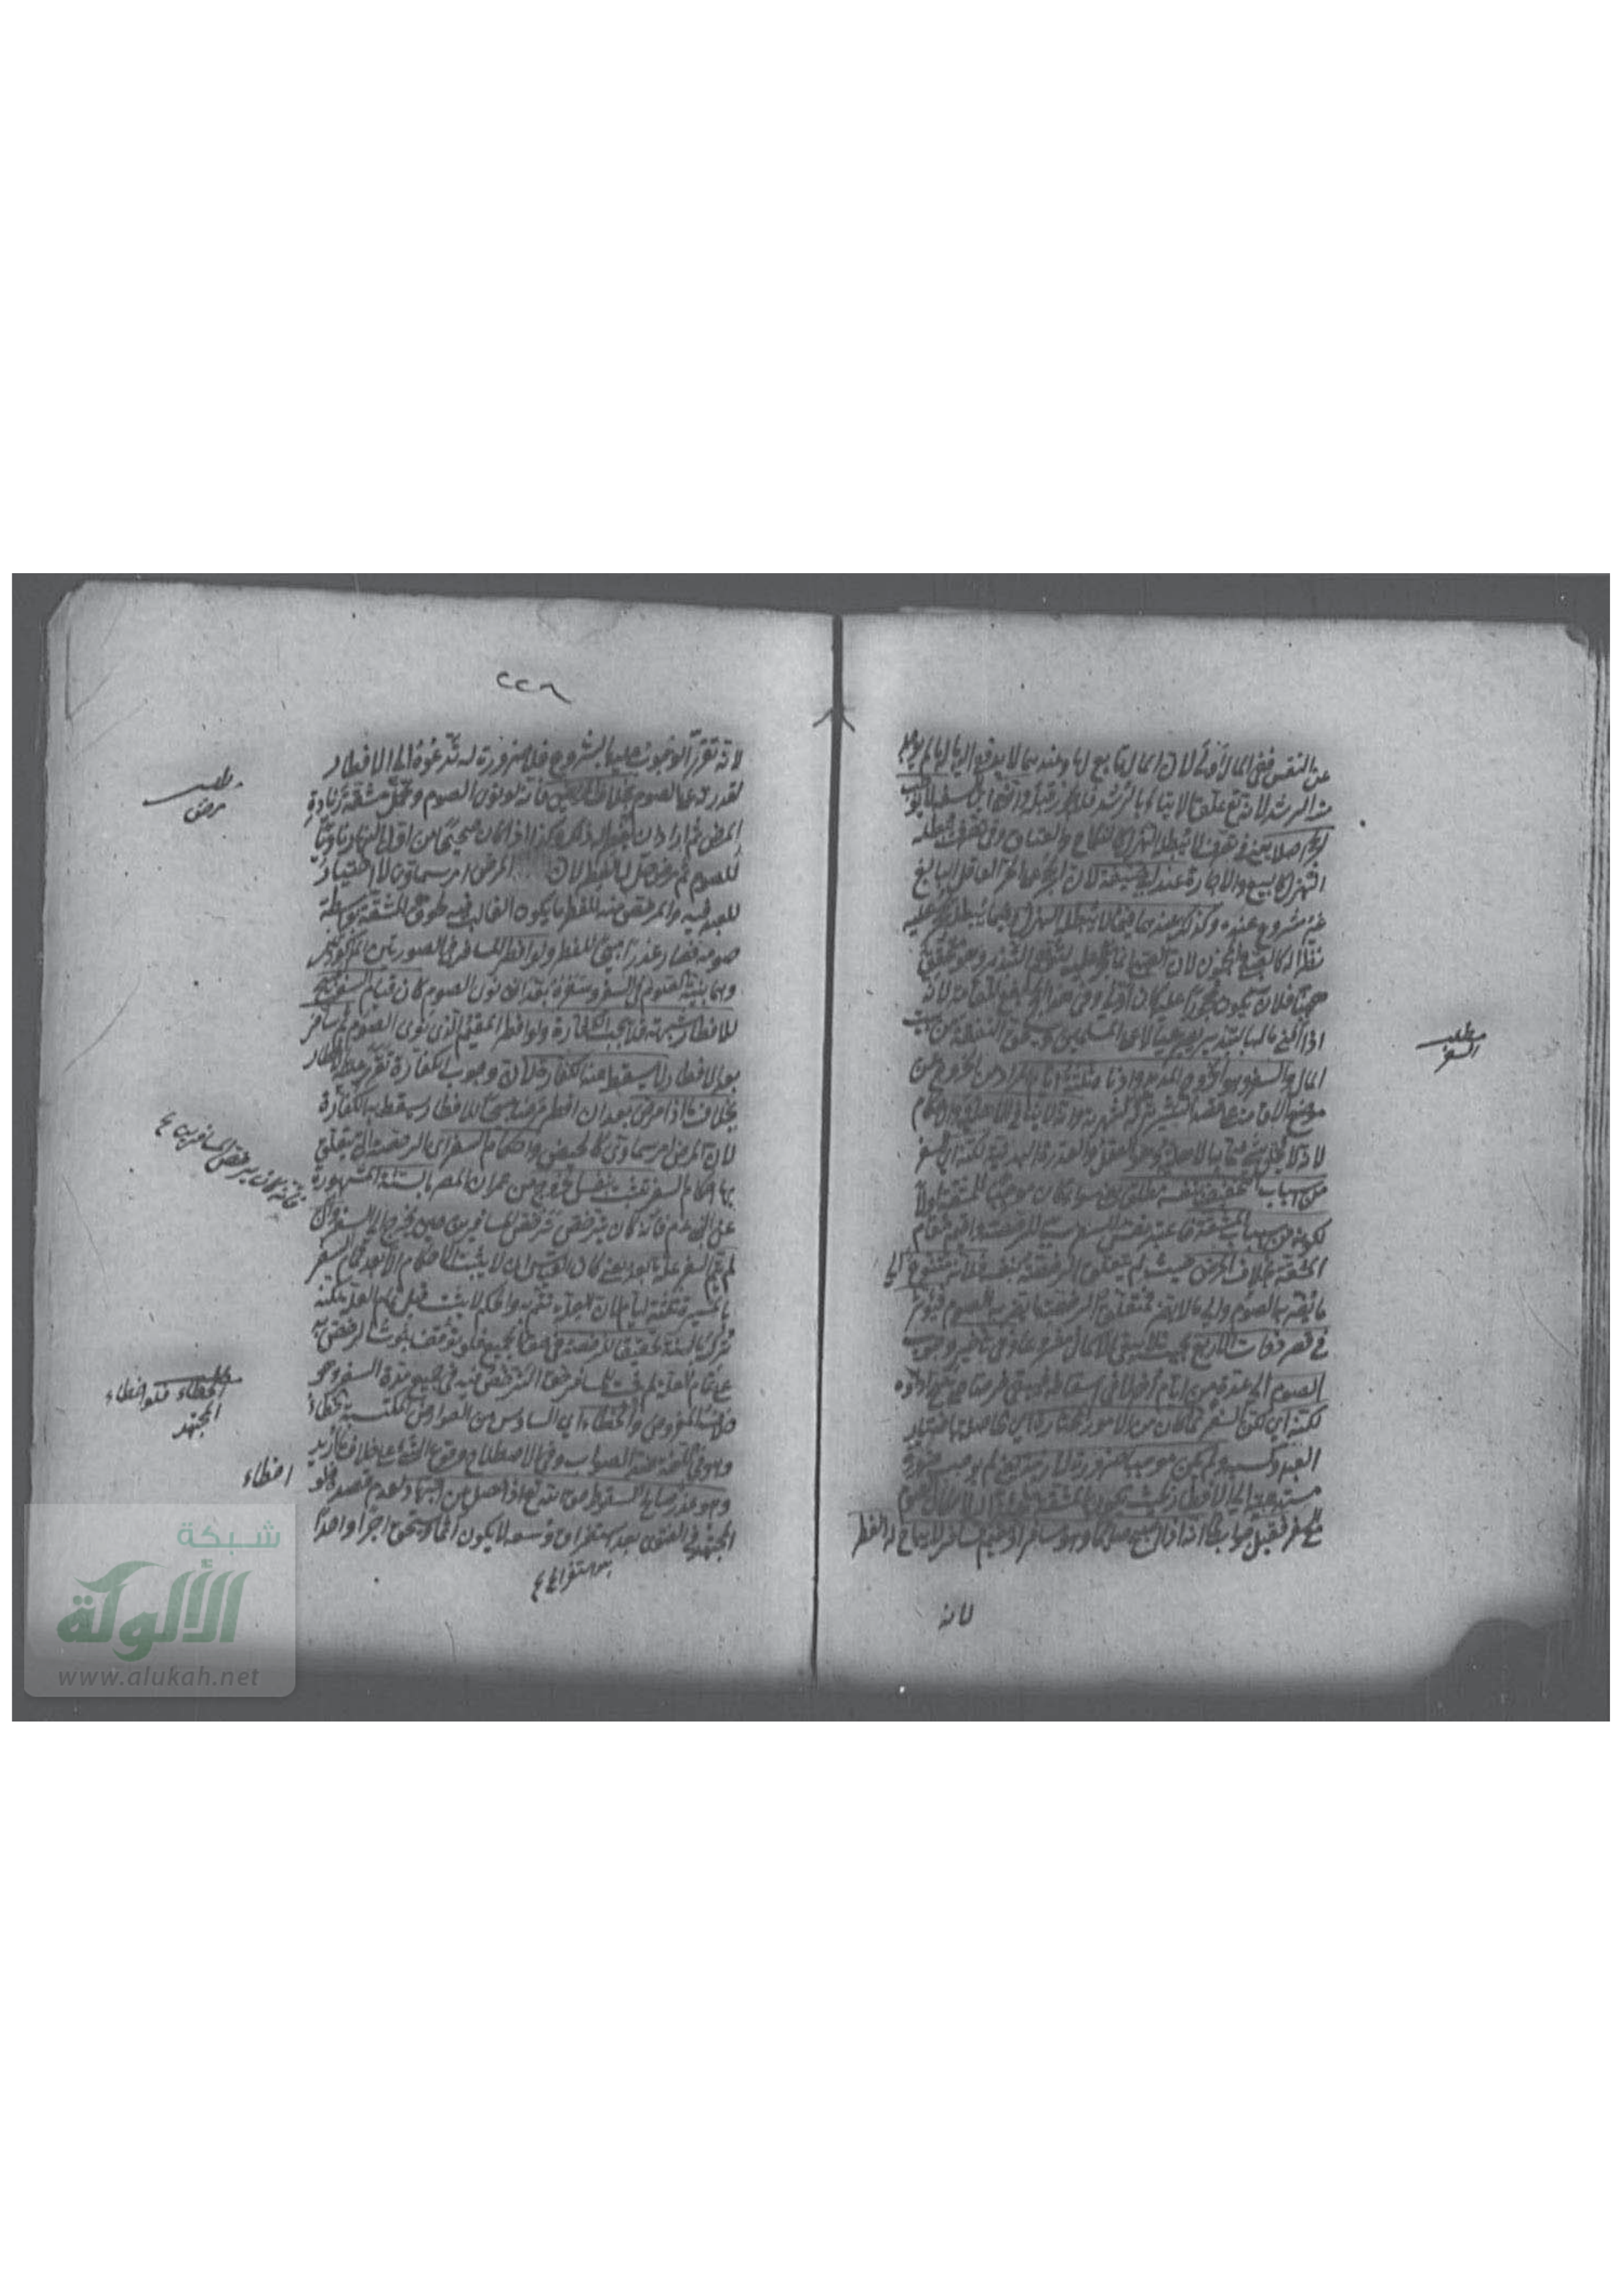 عن النفس ففي المال أولى لان المال تابع لها وعندهما لا يدفع اليه المال ما لم يوجد
منه الرشد لانه تع علق الايتاء بالرشد فلا يجوز قبله
لا يبطله الهزل كالنكاح والعتاق وفي تصرف يبطله
الهزل كالبيع والاجارة عند ابي حنيفة لان الحجر على الحر العاقل البالغ
غير مشروع عنده وكذلك عندهما فيما لا يبطله الهزل وفيما يبطله يحجر عليه
نظرا له كالصبي والمجنون لان الصبي انما يحجر عليه لتوهم التبذير وهو متحقق
ههنا فلان يكون محجورا عليه كان أولى وفي هذا الحجر نفع العامة لانه
اذا أفنى ماله بالتبذير يصير عيالا على المسلمين ويستحق النفقة من بيت
المال والسفر وهو الخروج المديد وادناه ثلثة ايام المراد من الخروج عن
موضع الاقامة على قصد السير وانه لا ينافي الاهلية والاحكام
لانه لا يخل بشيء مما به الاهلية وهو العقل والقدرة البدنية لكنه اي السفر
من اسباب التخفيف بنفسه مطلقا يعني سواء كان موجبا للمشقة اولا
لكونه من اسباب المشقة فاعتبر نفس السفر سببا للرخصة واقيم مقام
المشقة بخلاف المرض حيث لم يتعلق الرخصة بنفسه لانه متنوع الى
ما يضر به الصوم والى ما لا يضر فتعلق الرخصة بما يضر به الصوم فيؤثر
في قصر ذوات الاربع بحيث لا يبقى الاكمال مشروعا وفي تاخير وجوب
الصوم الى عدة من ايام أخر لا في اسقاطه فبقي فرضا حتى صح اداؤه
لكنه اي لكن السفر لما كان من الامور المختارة اي الحاصلة باختيار
العبد وكسبه ولم يكن موجبا ضرورة لازمة يعني لم يوجب ضرورة
مستدعية الى الافطار بحيث
فقيل جواب لما انه اذا اصبح صائما وهو مسافر او مقيم فسافر لا يباح له الفطر
لانه
مطلب
السفر
٢٢٨
لانه تقرر الوجوب عليه بالشروع فلا ضرورة له تدعوه الى الافطار
لقدرته على الصوم بخلاف المريض فانه لو نوى الصوم وتحمل مشقة زيادة
المرض ثم اراد ان يفطر حل له ذلك وكذا اذا كان صحيحا من اول النهار ناويا
للصوم ثم مرض حل له الفطر لان المرض امر سماوي لا اختيار
للعبد فيه والمرخص منه للفطر ما يكون الغالب فيه لحوق المشقة بواسطة
صومه فصار عذرا مبيحا للفطر ولو افطر المسافر في الصورتين
وهما نية الصوم في السفر وسفره بعد ان نوى الصوم كان قيام السفر المبيح
للافطار شبهة فلا تجب الكفارة ولو افطر المقيم الذي نوى الصوم ثم سافر
بعد الافطار لا يسقط عنه الكفارة لان وجوب الكفارة تقرر عليه بالافطار
بخلاف ما اذا مرض بعد ان افطر مرضا مبيحا للافطار يسقط به الكفارة
لان المرض امر سماوي كالحيض واحكام السفر اي الرخصة التي يتعلق
بها احكام السفر تثبت بنفس الخروج من عمران المصر بالسنة المشهورة
عن النبي عم فانه كان يترخص ترخص المسافرين حين يخرج الى السفر وان
لم يتم السفر علة بعد يعني كان القياس ان لا يثبت الاحكام الا بعد تمام السفر
بالمسيرة ثلثة ايام لان العلة تتم به والحكم لا يثبت قبل تمام العلة لكنه
ترك بالسنة تحقيقا للرخصة في حق الجميع فلو توقف ثبوت الرخص به
على تمام العلة لم يثبت للمسافر حق الترخص به في جميع مدة السفر وهو
خلاف المفروض والخطاء اي السادس من العوارض المكتسبة الخطاء
وهو في اللغة ضد الصواب وفي الاصطلاح وقوع الشيء على خلاف ما اريد
وهو عذر صالح لسقوط حق الله تع اذا حصل عن اجتهاد لعدم قصده فلو
المجتهد في الفتوى بعد استفراغ وسعه لا يكون آثما ويستحق اجرا واحدا
بعد استفراغ
مطلب
مرض
فانه كان يرخص المسافرين
مطلب
الخطاء فلو اخطاء
المجتهد
اخطاء
شبكة
الألوكة
www.alukah.net